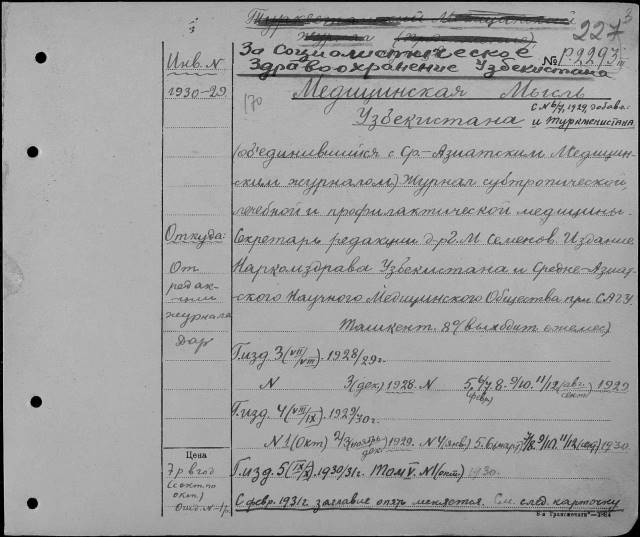 Туркестанский Медицинский
журнал
227
3
За Социалистическое
Здравоохранение Узбекистана
№ Р.2293/III
Инв. N
1930-29
170
Медицинская Мысль
Узбекистана
с № 6/7, 1929, добава:
и Туркменистана
(объединившийся с Ср.-Азиатским Медицин-
ским журналом) Журнал субтропической,
лечебной и профилактической медицины.
Откуда:
От
редак-
ции
журнала
Дар
Секретарь редакции д-р Г.М. Семенов. Издание
Наркомздрава Узбекистана и Средне-Азиат-
ского Научного Медицинского Общества при САГУ
Ташкент. 8° (выходит ежемес)
Г. изд. 3 (VII/VIII). 1928/29г.
N 3 (дек) 1928. N 5, 6/7 8. 9/10. 11/12 (авг. сент) 1929
(февр)
Г. изд. 4 (VIII/IX). 1929/30г.
N 1 (окт) 2/3 (ноябрь дек) 1929. N 4 (янв) 5. 6 (март) 7/8. 9/10. 11/12 (сен) 1930
Цена
7 р в год
(с окт. по
окт.)
Отд. N - 1 р.
Г. изд. 5 (IX/X). 1930/31г. Том V. N1 (окт) 1930.
С февр. 1931 г заглавие опять меняется. См. след. карточку